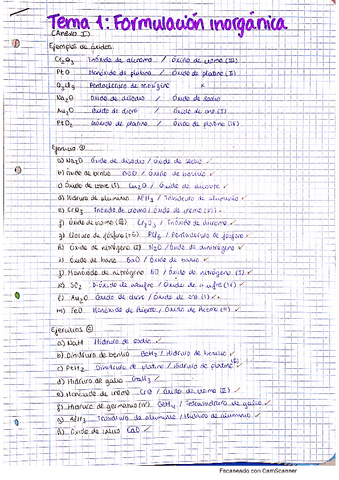 Tema 1: Formulación inorgánica
(Anexo I)
Ejemplos de óxidos.
Cr2O3 Trióxido de dicromo / Óxido de cromo (III)
PtO Monóxido de platino / Óxido de platino (II)
Pentaóxido de x
Na2O Óxido de disodio / Óxido de sodio
Au2O Óxido de dioro / Óxido de oro (I)
PtO2 Dióxido de platino / Óxido de platino (IV)
Ejercicio
a) Na2O Óxido de disodio / Óxido de sodio ✓
b) Óxido de berilio BeO / Óxido de berilio ✓
c) Óxido de (I) Cu2O / Óxido de ✓
d) Hidruro de aluminio AlH3 / Trihidruro de aluminio ✓
e) CrO3 Trióxido de cromo / Óxido de cromo (VI) ✓
f) Óxido de cromo (III) Cr2O3 / Trióxido de dicromo ✓
g) de fósforo (+5) / de fósforo ✓
h) Óxido de nitrógeno (I) N2O / Óxido de dinitrógeno ✓
i) Óxido de bario BaO / Óxido de bario ✓
j) Monóxido de nitrógeno NO / Óxido de nitrógeno (II) ✓
k) SO2 Dióxido de azufre / Óxido de azufre (IV) ✓
l) Au2O Óxido de dioro / Óxido de oro (I) ✓
m) FeO Monóxido de hierro / Óxido de hierro (II) ✓
Ejercicios
a) NaH Hidruro de sodio ✓
b) Dihidruro de berilio BeH2 / Hidruro de berilio ✓
c) PtH2 Dihidruro de platino / Hidruro de platino (II) ✓
d) Hidruro de galio GaH3 ✓
e) Monóxido de cromo CrO / Óxido de cromo (II) ✓
f) Hidruro de germanio (IV) GeH4 / Tetrahidruro de ✓
g) AlH3 Trihidruro de aluminio / Hidruro de aluminio ✓
h) Óxido de calcio CaO ✓
Escaneado con CamScanner